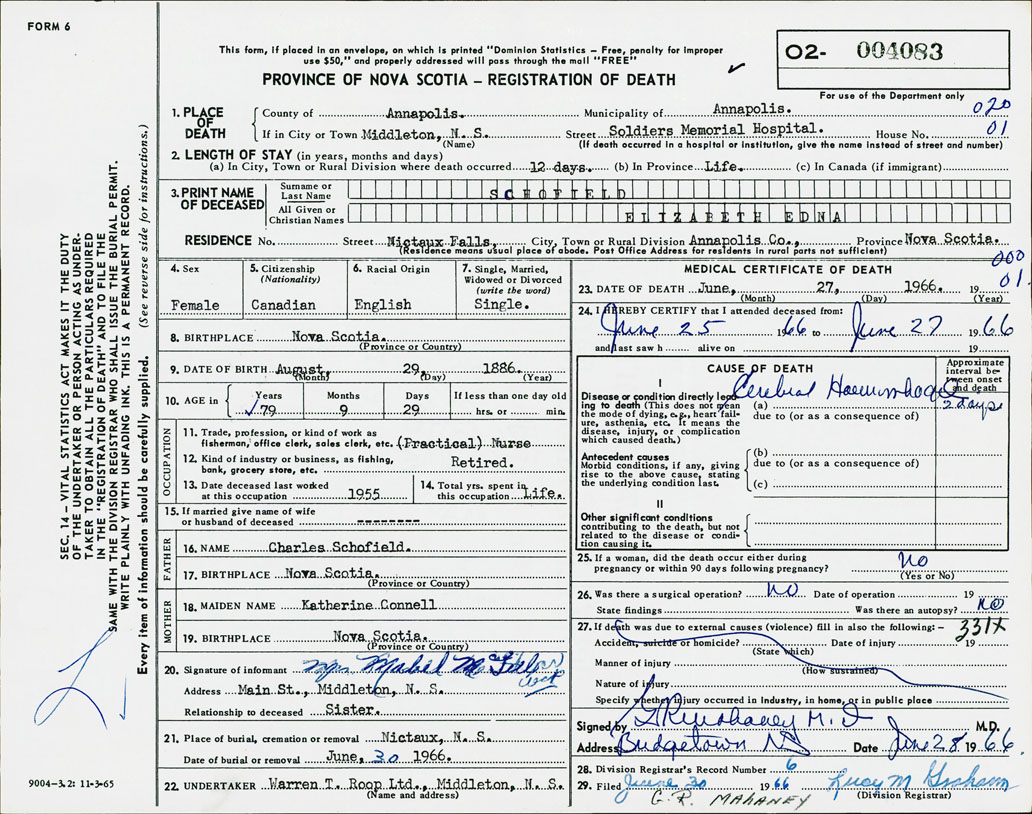 FORM 6
This form, if placed in an envelope, on which is printed "Dominion Statistics – Free, penalty for improper
use $50," and properly addressed will pass through the mail "FREE"
PROVINCE OF NOVA SCOTIA – REGISTRATION OF DEATH
02- 004083
For use of the Department only
020
01
1. PLACE OF DEATH
County of Annapolis. Municipality of Annapolis.
If in City or Town Middleton, N. S. Street Soldiers Memorial Hospital. House No.
(Name) (If death occurred in a hospital or institution, give the name instead of street and number)
2. LENGTH OF STAY (in years, months and days)
(a) In City, Town or Rural Division where death occurred 12 days. (b) In Province Life. (c) In Canada (if immigrant)
3. PRINT NAME OF DECEASED
Surname or Last Name SCHOFIELD
All Given or Christian Names ELIZABETH EDNA
RESIDENCE No. Street Nictaux Falls, City, Town or Rural Division Annapolis Co., Province Nova Scotia.
(Residence means usual place of abode. Post Office Address for residents in rural parts not sufficient)
4. Sex
Female
5. Citizenship
(Nationality)
Canadian
6. Racial Origin
English
7. Single, Married,
Widowed or Divorced
(write the word)
Single.
8. BIRTHPLACE Nova Scotia.
(Province or Country)
9. DATE OF BIRTH August, 29, 1886.
(Month) (Day) (Year)
10. AGE in
Years Months Days If less than one day old
79 9 29 hrs. or min.
OCCUPATION
11. Trade, profession, or kind of work as
fisherman, office clerk, sales clerk, etc. (Practical) Nurse
12. Kind of industry or business, as fishing,
bank, grocery store, etc. Retired.
13. Date deceased last worked
at this occupation 1955
14. Total yrs. spent in
this occupation Life.
15. If married give name of wife
or husband of deceased --------
FATHER
16. NAME Charles Schofield.
17. BIRTHPLACE Nova Scotia.
(Province or Country)
MOTHER
18. MAIDEN NAME Katherine Connell
19. BIRTHPLACE Nova Scotia.
(Province or Country)
20. Signature of informant Mrs Mabel
Address Main St., Middleton, N. S.
Relationship to deceased Sister.
21. Place of burial, cremation or removal Nictaux, N. S.
Date of burial or removal June, 30 1966.
22. UNDERTAKER Warren T. Roop Ltd., Middleton, N. S.
(Name and address)
MEDICAL CERTIFICATE OF DEATH
000
01.
23. DATE OF DEATH June, 27, 1966. 19
(Month) (Day) (Year)
24. I HEREBY CERTIFY that I attended deceased from:
June 25 1966 to June 27 1966
and last saw h alive on 19
CAUSE OF DEATH
Approximate interval between onset and death
I
Disease or condition directly leading to death (This does not mean the mode of dying, e.g., heart failure, asthenia, etc. It means the disease, injury, or complication which caused death.)
(a) Cerebral Haemorrhage 2 days
due to (or as a consequence of)
Antecedent causes
Morbid conditions, if any, giving rise to the above cause, stating the underlying condition last.
(b)
due to (or as a consequence of)
(c)
II
Other significant conditions
contributing to the death, but not related to the disease or condition causing it.
25. If a woman, did the death occur either during
pregnancy or within 90 days following pregnancy? No
(Yes or No)
26. Was there a surgical operation? No Date of operation 19
State findings Was there an autopsy? No
27. If death was due to external causes (violence) fill in also the following:– 331X
Accident, suicide or homicide? Date of injury 19
(State which)
Manner of injury
(How sustained)
Nature of injury
Specify whether injury occurred in Industry, in home, or in public place
Signed by M.D. M.D.
Address Bridgetown NS Date June 28 1966.
28. Division Registrar's Record Number 6
29. Filed June 30 1966 Lucy M Graham
(Division Registrar)
G. R. MAHANEY
SEC. 14 – VITAL STATISTICS ACT MAKES IT THE DUTY
OF THE UNDERTAKER OR PERSON ACTING AS UNDER-
TAKER TO OBTAIN ALL THE PARTICULARS REQUIRED
IN THE "REGISTRATION OF DEATH" AND TO FILE THE
SAME WITH THE DIVISION REGISTRAR WHO SHALL ISSUE THE BURIAL PERMIT.
WRITE PLAINLY WITH UNFADING INK. THIS IS A PERMANENT RECORD.
Every item of information should be carefully supplied. (See reverse side for instructions.)
9004-3.2: 11-3-65